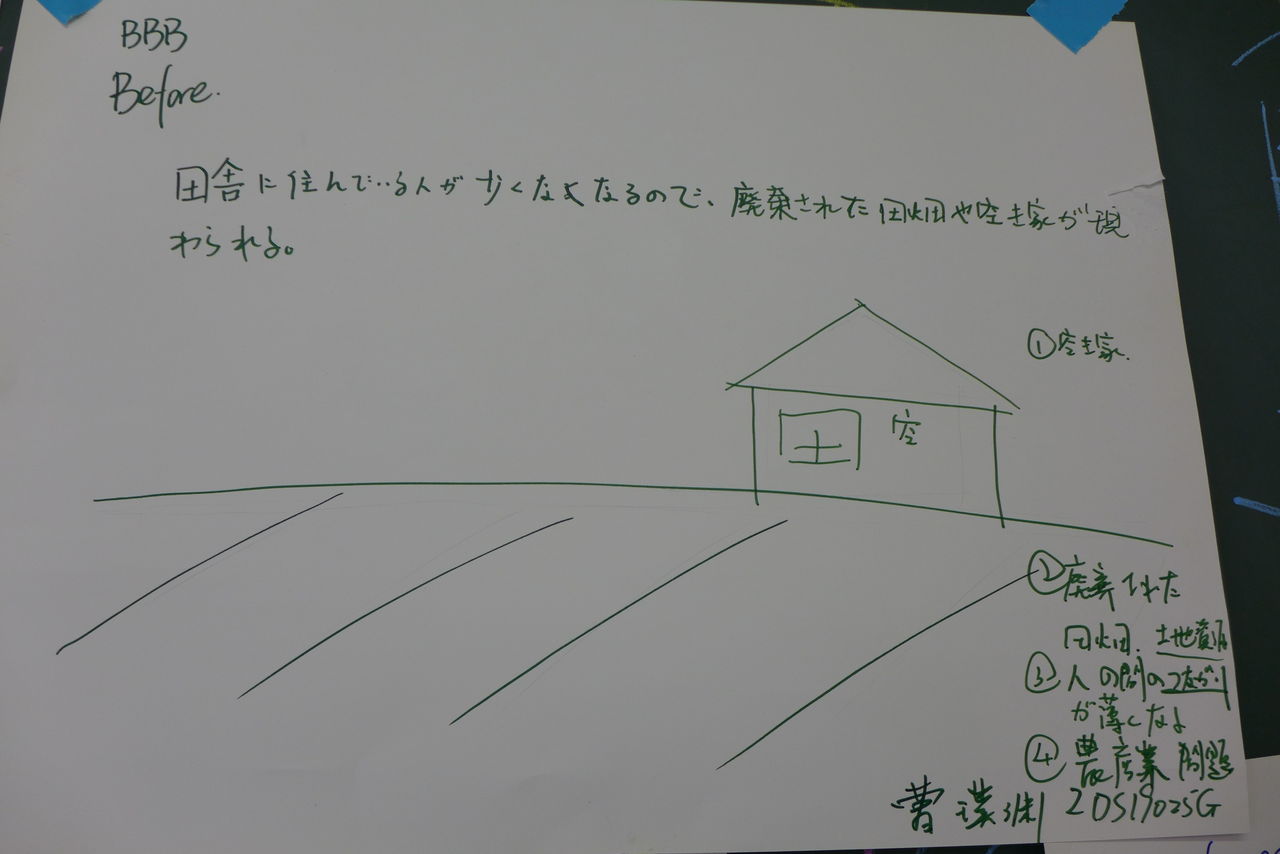 BBB
Before.
田舎に住んでいる人が少くなくなるので、廃棄された田畑や空き家が現
わられる。
①空き家.
空
②廃棄された
田畑.土地資源
③人の間のつながり
が薄くなる
④農産業問題
曹 2DS19025G